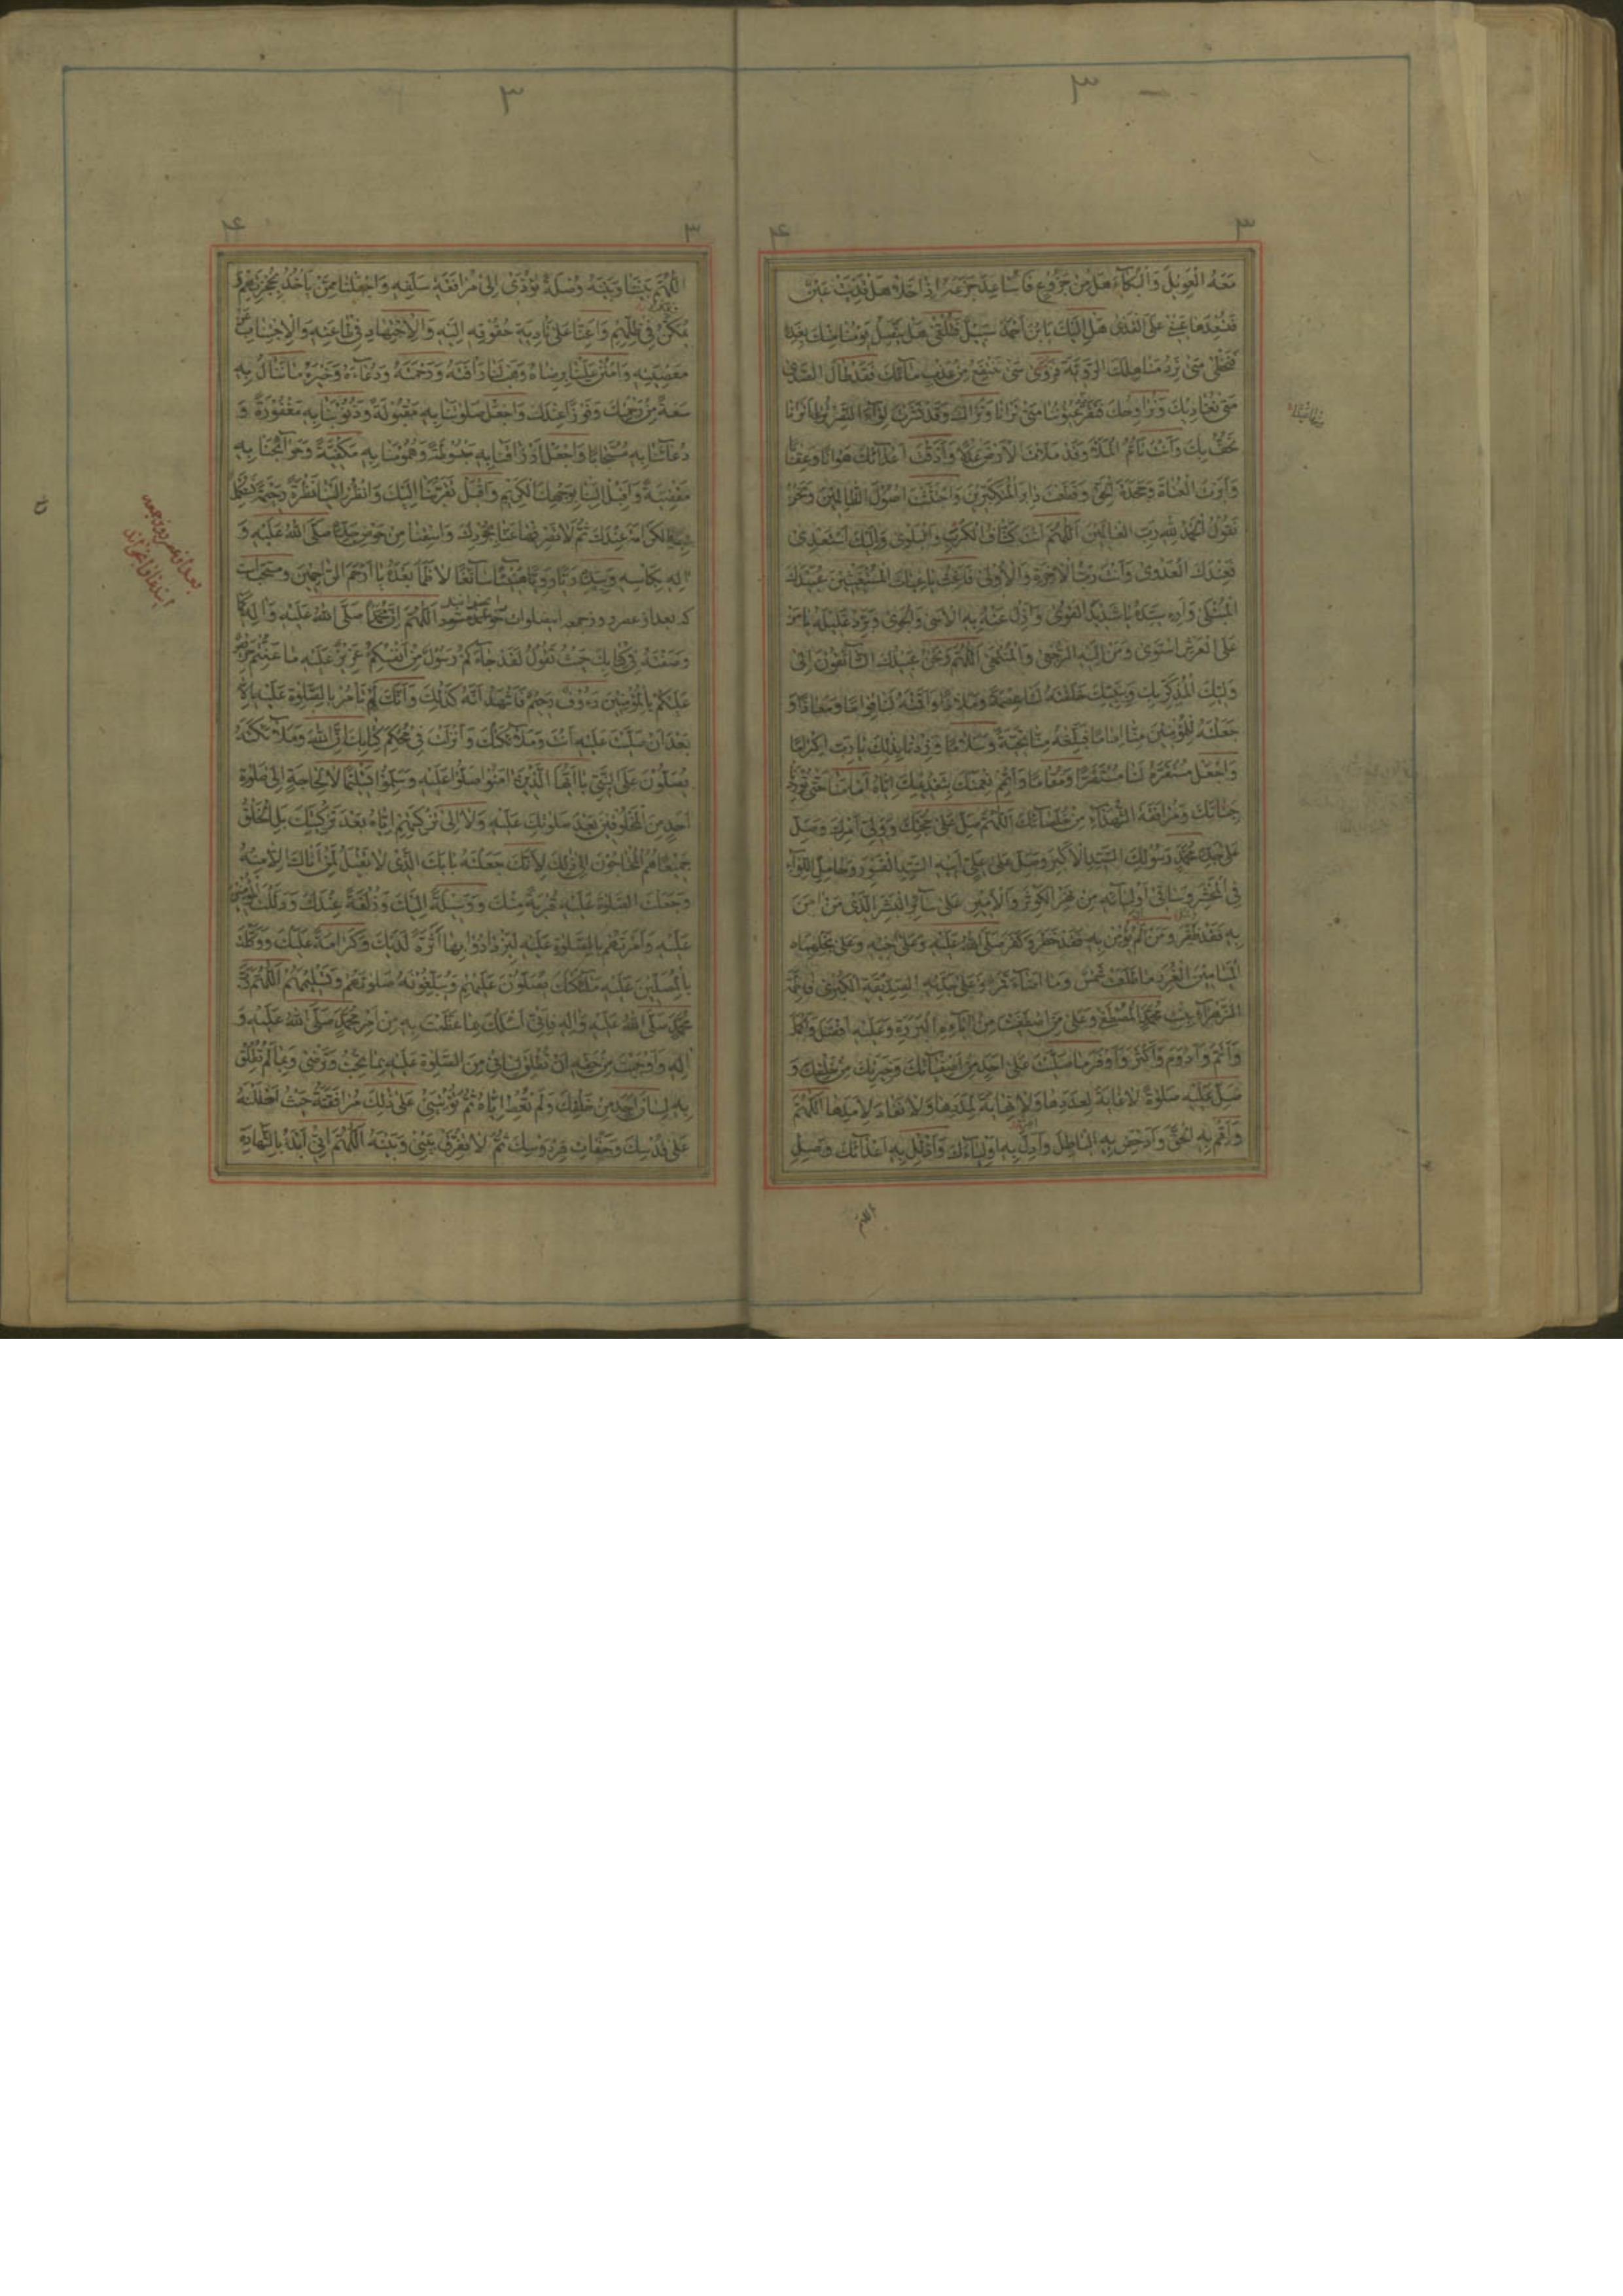 ۳
۳ ۴
مَعَهُ الْعَوِيلَ وَالْبُكَاءَ هَلْ مِنْ جَزُوعٍ فَأُسَاعِدَ جَزَعَهُ إِذَا خَلَا هَلْ قَذِيَتْ عَيْنٌ
فَتُسْعِدَهَا عَيْنِي عَلَى الْقَذَى هَلْ إِلَيْكَ يَا بْنَ أَحْمَدَ سَبِيلٌ فَتُلْقَى هَلْ يَتَّصِلُ يَوْمُنَا مِنْكَ بِغَدِهِ
فَنَحْظَى مَتَى نَرِدُ مَنَاهِلَكَ الرَّوِيَّةَ فَنَرْوَى مَتَى نَنْتَفِعُ مِنْ عَذْبِ مَائِكَ فَقَدْ طَالَ الصَّدَى
مَتَى نُغَادِيكَ وَنُرَاوِحُكَ فَتَقِرَّ عُيُونُنَا مَتَى تَرَانَا وَنَرَاكَ وَقَدْ نَشَرْتَ لِوَاءَ النَّصْرِ تُرَى أَتَرَانَا
نَحُفُّ بِكَ وَأَنْتَ تَأُمُّ الْمَلَأَ وَقَدْ مَلَأْتَ الْأَرْضَ عَدْلًا وَأَذَقْتَ أَعْدَائَكَ هَوَانًا وَعِقَابًا
وَأَبَرْتَ الْعُتَاةَ وَجَحَدَةَ الْحَقِّ وَقَطَعْتَ دَابِرَ الْمُتَكَبِّرِينَ وَاجْتَثَثْتَ أُصُولَ الظَّالِمِينَ وَنَحْنُ
نَقُولُ الْحَمْدُ لِلَّهِ رَبِّ الْعَالَمِينَ اللَّهُمَّ أَنْتَ كَشَّافُ الْكُرَبِ وَالْبَلْوَى وَإِلَيْكَ أَسْتَعْدِي
فَعِنْدَكَ الْعَدْوَى وَأَنْتَ رَبُّ الْآخِرَةِ وَالْأُولَى فَأَغِثْ يَا غِيَاثَ الْمُسْتَغِيثِينَ عُبَيْدَكَ
الْمُبْتَلَى وَأَرِهِ سَيِّدَهُ يَا شَدِيدَ الْقُوَى وَأَزِلْ عَنْهُ بِهِ الْأَسَى وَالْجَوَى وَبَرِّدْ غَلِيلَهُ يَا مَنْ
عَلَى الْعَرْشِ اسْتَوَى وَمَنْ إِلَيْهِ الرُّجْعَى وَالْمُنْتَهَى اللَّهُمَّ وَنَحْنُ عَبِيدُكَ التَّائِقُونَ إِلَى
وَلِيِّكَ الْمُذَكِّرِ بِكَ وَبِنَبِيِّكَ خَلَقْتَهُ لَنَا عِصْمَةً وَمَلَاذًا وَأَقَمْتَهُ لَنَا قِوَامًا وَمَعَاذًا وَ
جَعَلْتَهُ لِلْمُؤْمِنِينَ مِنَّا إِمَامًا فَبَلِّغْهُ مِنَّا تَحِيَّةً وَسَلَامًا وَزِدْنَا بِذَلِكَ يَا رَبِّ إِكْرَامًا
وَاجْعَلْ مُسْتَقَرَّهُ لَنَا مُسْتَقَرًّا وَمُقَامًا وَأَتْمِمْ نِعْمَتَكَ بِتَقْدِيمِكَ إِيَّاهُ أَمَامَنَا حَتَّى تُورِدَنَا
جِنَانَكَ وَمُرَافَقَةَ الشُّهَدَاءِ مِنْ خُلَصَائِكَ اللَّهُمَّ صَلِّ عَلَى حُجَّتِكَ وَوَلِيِّ أَمْرِكَ وَصَلِّ
عَلَى جَدِّهِ مُحَمَّدٍ رَسُولِكَ السَّيِّدِ الْأَكْبَرِ وَصَلِّ عَلَى عَلِيٍّ أَبِيهِ السَّيِّدِ الْقَسْوَرِ وَحَامِلِ اللِّوَاءِ
فِي الْمَحْشَرِ وَسَاقِي أَوْلِيَائِهِ مِنْ نَهَرِ الْكَوْثَرِ وَالْأَمِيرِ عَلَى سَائِرِ الْبَشَرِ الَّذِي مَنْ آمَنَ
بِهِ فَقَدْ ظَفَرَ وَمَنْ لَمْ يُؤْمِنْ بِهِ فَقَدْ خَطَرَ وَكَفَرَ صَلَّى اللَّهُ عَلَيْهِ وَعَلَى أَخِيهِ وَعَلَى نَجْلِهِمَا
الْمَيَامِينِ الْغُرَرِ مَا طَلَعَتْ شَمْسٌ وَمَا أَضَاءَ قَمَرٌ وَعَلَى جَدَّتِهِ الصِّدِّيقَةِ الْكُبْرَى فَاطِمَةَ
الزَّهْرَاءِ بِنْتِ مُحَمَّدٍ الْمُصْطَفَى وَعَلَى مَنِ اصْطَفَيْتَ مِنْ آبَائِهِ الْبَرَرَةِ وَعَلَيْهِ أَفْضَلَ وَأَكْمَلَ
وَأَتَمَّ وَأَدْوَمَ وَأَكْثَرَ وَأَوْفَرَ مَا صَلَّيْتَ عَلَى أَحَدٍ مِنْ أَصْفِيَائِكَ وَخِيَرَتِكَ مِنْ خَلْقِكَ وَ
صَلِّ عَلَيْهِ صَلَاةً لَا غَايَةَ لِعَدَدِهَا وَلَا نِهَايَةَ لِمَدَدِهَا وَلَا نَفَادَ لِأَمَدِهَا اللَّهُمَّ
وَأَقِمْ بِهِ الْحَقَّ وَأَدْحِضْ بِهِ الْبَاطِلَ وَأَدِلْ بِهِ أَوْلِيَاءَكَ وَأَذْلِلْ بِهِ أَعْدَائَكَ وَصِلِ
اللهم
۳
۳ ۴
اللَّهُمَّ بَيْنَنَا وَبَيْنَهُ وُصْلَةً تُؤَدِّي إِلَى مُرَافَقَةِ سَلَفِهِ وَاجْعَلْنَا مِمَّنْ يَأْخُذُ بِحُجْزَتِهِمْ وَ
يَمْكُنُ فِي ظِلِّهِمْ وَأَعِنَّا عَلَى تَأْدِيَةِ حُقُوقِهِ إِلَيْهِ وَالْاِجْتِهَادِ فِي طَاعَتِهِ وَالْاِجْتِنَابِ عَنْ
مَعْصِيَتِهِ وَامْنُنْ عَلَيْنَا بِرِضَاهُ وَهَبْ لَنَا رَأْفَتَهُ وَرَحْمَتَهُ وَدُعَاءَهُ وَخَيْرَهُ مَا نَنَالُ بِهِ
سَعَةً مِنْ رَحْمَتِكَ وَفَوْزًا عِنْدَكَ وَاجْعَلْ صَلَوٰتَنَا بِهِ مَقْبُولَةً وَذُنُوبَنَا بِهِ مَغْفُورَةً وَ
دُعَائَنَا بِهِ مُسْتَجَابًا وَاجْعَلْ أَرْزَاقَنَا بِهِ مَبْسُوطَةً وَهُمُومَنَا بِهِ مَكْفِيَّةً وَحَوَائِجَنَا بِهِ
مَقْضِيَّةً وَأَقْبِلْ إِلَيْنَا بِوَجْهِكَ الْكَرِيمِ وَاقْبَلْ تَقَرُّبَنَا إِلَيْكَ وَانْظُرْ إِلَيْنَا نَظْرَةً رَحِيمَةً نَسْتَكْمِلُ
بِهَا الْكَرَامَةَ عِنْدَكَ ثُمَّ لَا تَصْرِفْهَا عَنَّا بِجُودِكَ وَاسْقِنَا مِنْ حَوْضِ جَدِّهِ صَلَّى اللَّهُ عَلَيْهِ وَ
آلِهِ بِكَأْسِهِ وَبِيَدِهِ رَيًّا رَوِيًّا هَنِيئًا سَائِغًا لَا ظَمَأَ بَعْدَهُ يَا أَرْحَمَ الرَّاحِمِينَ ومستحب است
که بعد از عصر روز جمعه این صلوات خوانده شود اللَّهُمَّ إِنَّ مُحَمَّدًا صَلَّى اللَّهُ عَلَيْهِ وَآلِهِ كَمَا
وَصَفْتَهُ فِي كِتَابِكَ حَيْثُ تَقُولُ لَقَدْ جَاءَكُمْ رَسُولٌ مِنْ أَنْفُسِكُمْ عَزِيزٌ عَلَيْهِ مَا عَنِتُّمْ حَرِيصٌ
عَلَيْكُمْ بِالْمُؤْمِنِينَ رَءُوفٌ رَحِيمٌ فَأَشْهَدُ أَنَّهُ كَذَلِكَ وَأَنَّكَ لَمْ تَأْمُرْ بِالصَّلَوةِ عَلَيْهِ إِلَّا
بَعْدَ أَنْ صَلَّيْتَ عَلَيْهِ أَنْتَ وَمَلَائِكَتُكَ وَأَنْزَلْتَ فِي مُحْكَمِ كِتَابِكَ إِنَّ اللَّهَ وَمَلَائِكَتَهُ
يُصَلُّونَ عَلَى النَّبِيِّ يَا أَيُّهَا الَّذِينَ آمَنُوا صَلُّوا عَلَيْهِ وَسَلِّمُوا تَسْلِيمًا لَا لِحَاجَةٍ إِلَى صَلَوةِ
أَحَدٍ مِنَ الْمَخْلُوقِينَ بَعْدَ صَلَوٰتِكَ عَلَيْهِ وَلَا إِلَى تَزْكِيَتِهِمْ إِيَّاهُ بَعْدَ تَزْكِيَتِكَ بَلِ الْخَلْقُ
جَمِيعًا هُمُ الْمُحْتَاجُونَ إِلَى ذَلِكَ لِأَنَّكَ جَعَلْتَهُ بَابَكَ الَّذِي لَا تَقْبَلُ لِمَنْ أَتَاكَ إِلَّا مِنْهُ
وَجَعَلْتَ الصَّلَوةَ عَلَيْهِ قُرْبَةً مِنْكَ وَوَسِيلَةً إِلَيْكَ وَزُلْفَةً عِنْدَكَ وَدَلَلْتَ الْمُؤْمِنِينَ
عَلَيْهِ وَأَمَرْتَهُمْ بِالصَّلَوةِ عَلَيْهِ لِيَزْدَادُوا بِهَا أَثَرَةً لَدَيْكَ وَكَرَامَةً عَلَيْكَ وَوَكَّلْتَ
بِالْمُصَلِّينَ عَلَيْهِ مَلَائِكَتَكَ يُصَلُّونَ عَلَيْهِمْ وَيُبَلِّغُونَهُ صَلَوٰتَهُمْ وَتَسْلِيمَهُمْ اللَّهُمَّ رَبَّ
مُحَمَّدٍ صَلَّى اللَّهُ عَلَيْهِ وَآلِهِ فَإِنِّي أَسْئَلُكَ بِمَا عَظَّمْتَ بِهِ مِنْ أَمْرِ مُحَمَّدٍ صَلَّى اللَّهُ عَلَيْهِ وَ
آلِهِ وَأَوْجَبْتَ مِنْ حَقِّهِ أَنْ تُطْلِقَ لِسَانِي مِنَ الصَّلَوةِ عَلَيْهِ بِمَا تُحِبُّ وَتَرْضَى وَبِمَا لَمْ تُطْلِقْ
بِهِ لِسَانَ أَحَدٍ مِنْ خَلْقِكَ وَلَمْ تُعْطِهِ إِيَّاهُ ثُمَّ تُؤْتِيَنِي عَلَى ذَلِكَ مُرَافَقَتَهُ حَيْثُ أَحْلَلْتَهُ
عَلَى قُدْسِكَ وَجَنَّاتِ فِرْدَوْسِكَ ثُمَّ لَا تُفَرِّقْ بَيْنِي وَبَيْنَهُ اللَّهُمَّ إِنِّي أَبْدَأُ بِالشَّهَادَةِ
بعد از عصر روز جمعه